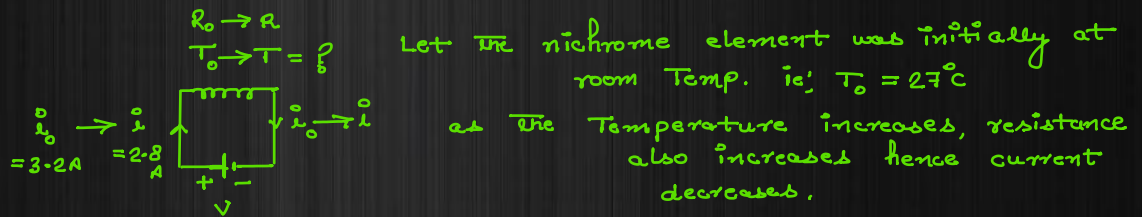 R₀ → R
T₀ → T = ?
i₀ → i
= 3.2A = 2.8 A
i₀ → i
+ -
V
Let the nichrome element was initially at
room Temp. ie; T₀ = 27°C
as the Temperature increases, resistance
also increases hence current
decreases.